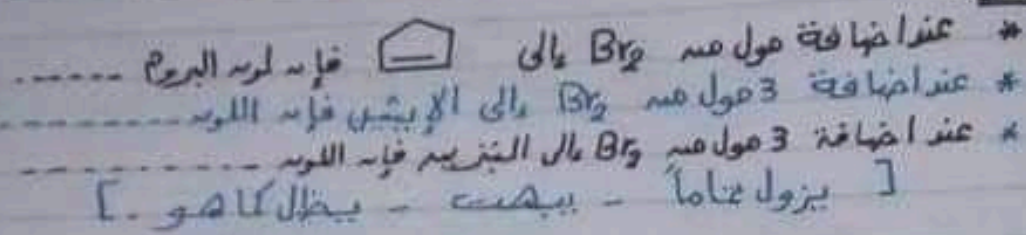 * عند اضافة مول من Br2 إلى فإن لون البروم ......
* عند اضافة 3 مول من Br2 إلى الإيثين فإن اللون ............
* عند اضافة 3 مول من Br2 إلى البنزين فإن اللون ............
[ يزول تماماً - يبهت - يظل كما هو . ]